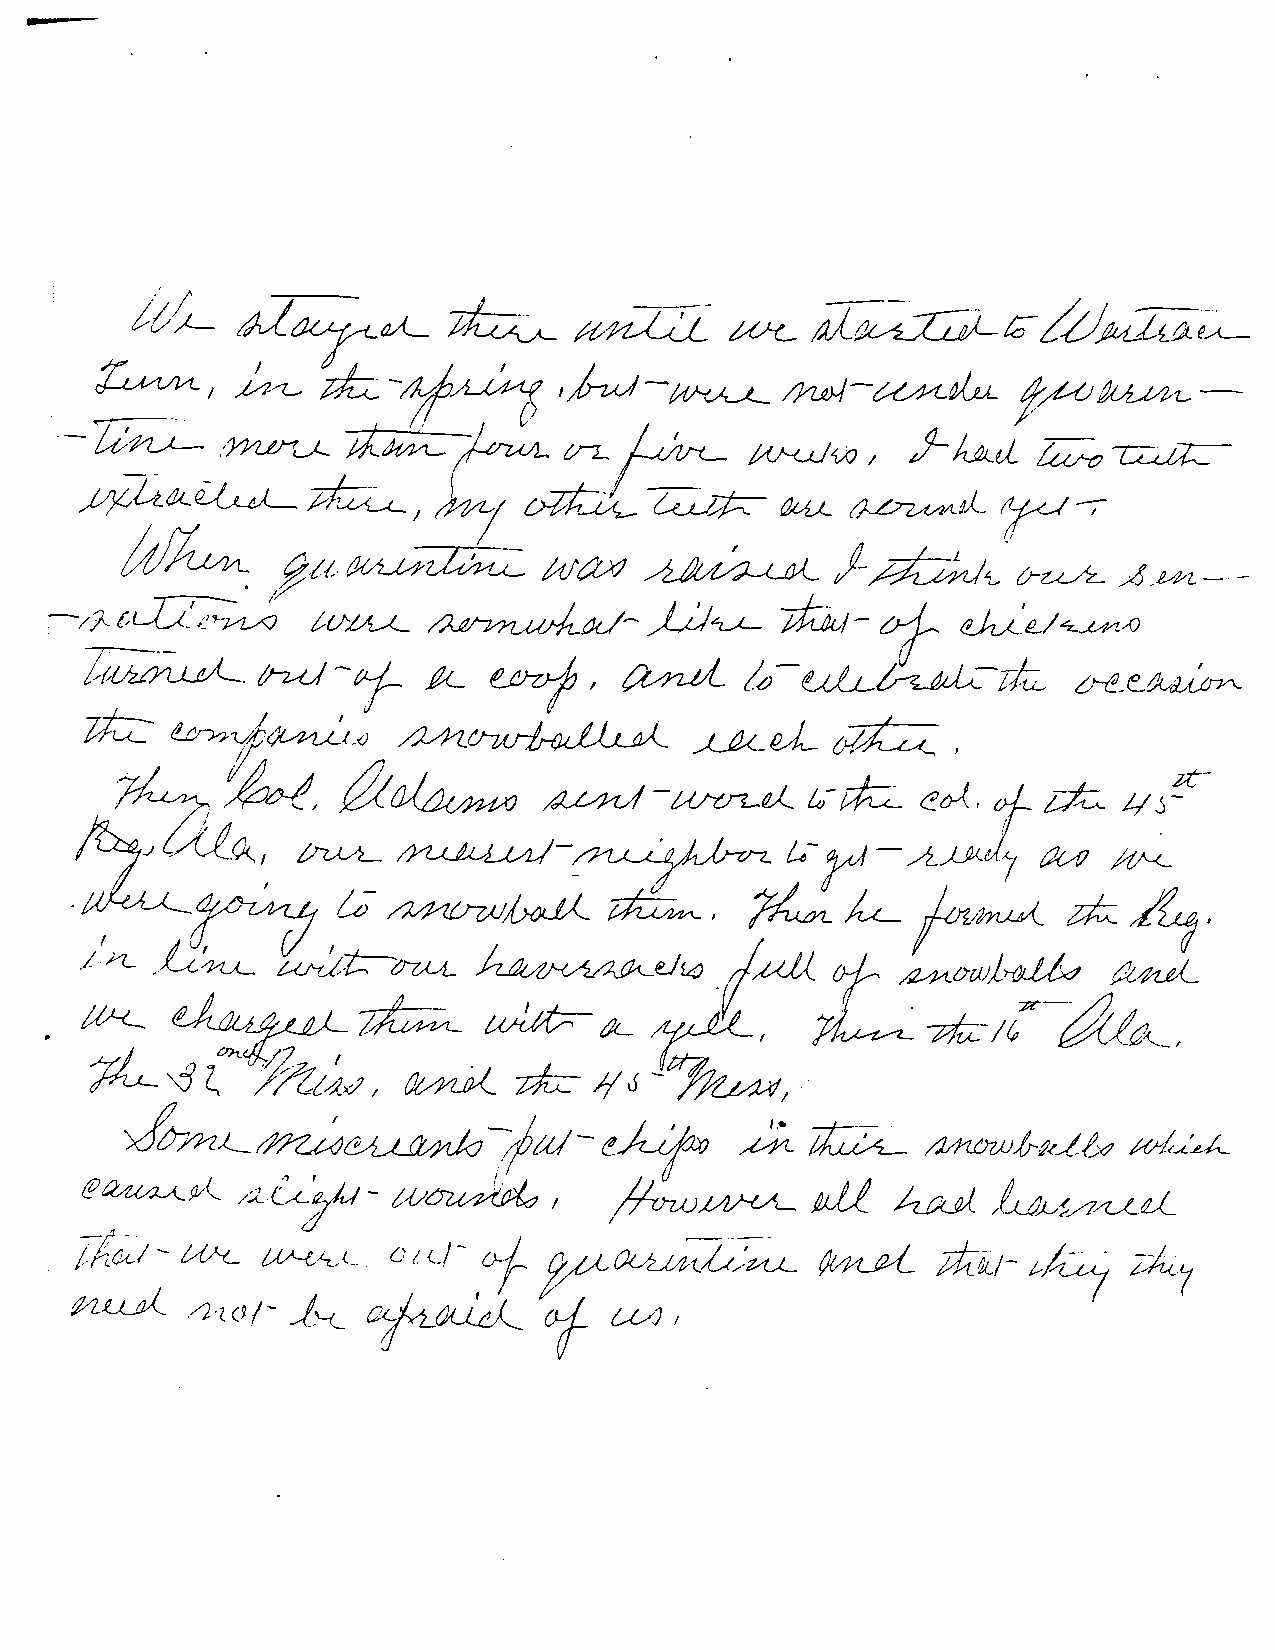 We stayed there until we started to Wartrace
Tenn, in the spring, but were not under quaren-
-tine more than four or five weeks, I had two teeth
extracted there, my other teeth are sound yet.
When quarentine was raised I think our sen-
-sations were somwhat like that of chickens
turned out of a coop, and to celebrate the occasion
the companies snowballed each other.
Then Col. Adams sent word to the col. of the 45st
Reg, Ala, our nearest neighbor to get ready as we
were going to snowball them. Then he formed the Reg.
in line with our haversacks full of snowballs and
we charged them with a yell, Then the 16th Ala.
The 32ond Miss, and the 45th Miss,
Some miscreants put chips in their snowballs which
caused slight wounds, However all had learned
that we were out of quarentine and that they they
need not be afraid of us,